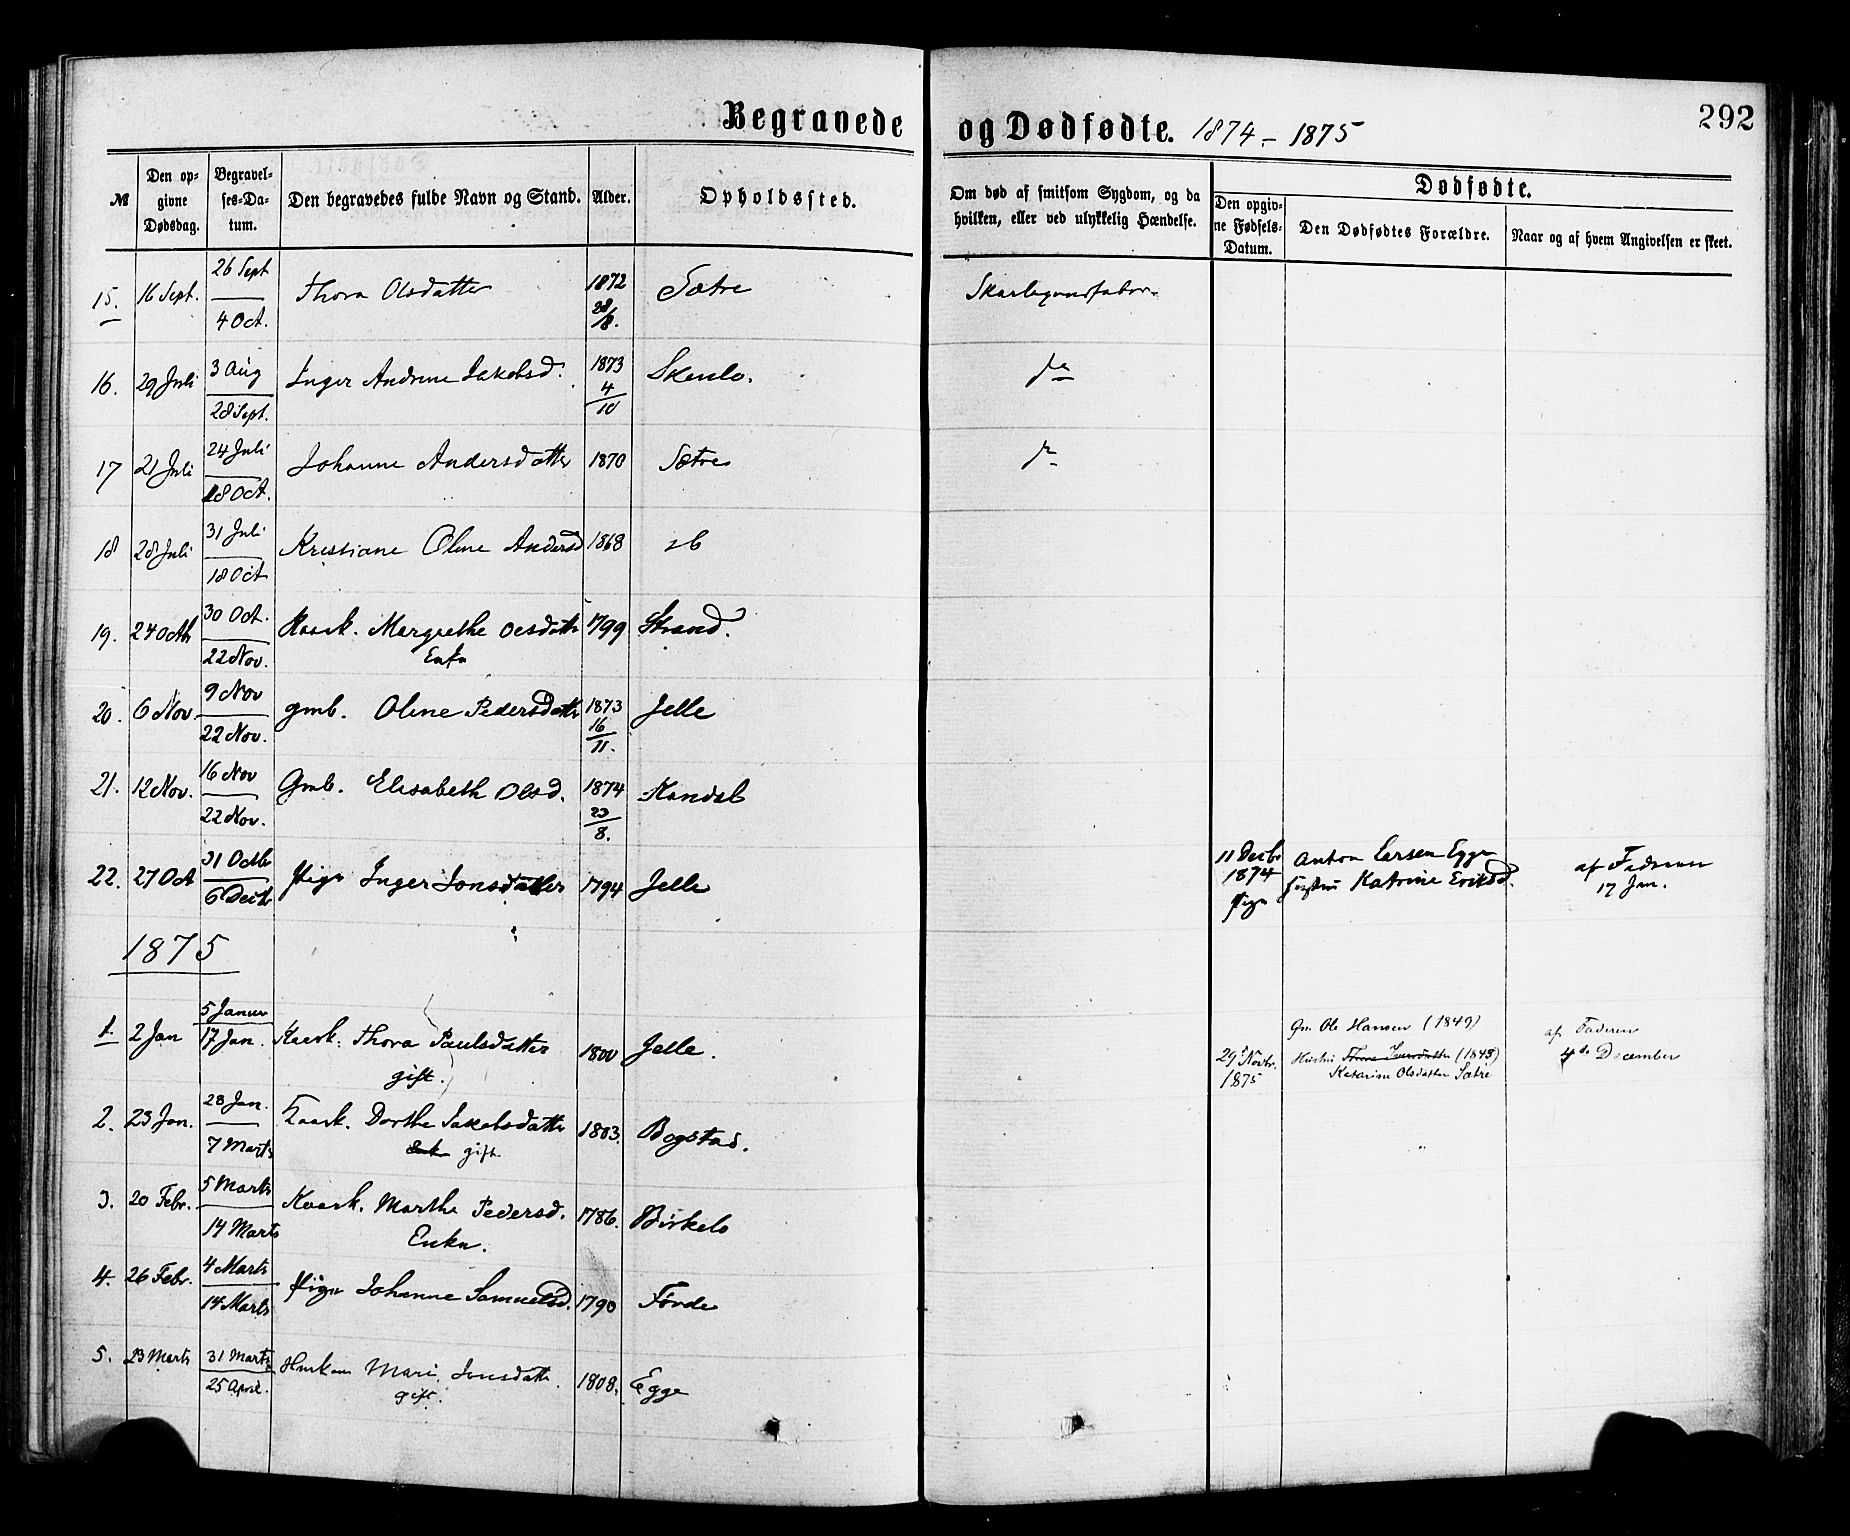 Begravede og Dødfødte. 1874 - 1875
292
№ Den opgivne Dødsdag. Begravelses-Datum. Den begravedes fulde Navn og Stand. Alder. Opholdssted. Om død af smitsom Sygdom, og da hvilken, eller ved ulykkelig Hændelse.
Dødfødte.
Den opgivne Fødsels-Datum. Den Dødfødtes Forældre. Naar og af hvem Angivelsen er skeet.
15. 16 Sept. 26 Sept 4 Oct. Thora Olsdatter 1872 28/8. Sætre
16. 29 Juli 3 Aug 28 Sept. Inger Andrine Jakobsd. 1873 4/10 Skeulo. do
17 21 Juli 24 Juli 18 Oct. Johanne Andersdatter 1870 Sætre do
18 28 Juli 31 Juli 18 Oct Kristiane Oline Andersd 1868 ib
19. 24 Octb 30 Oct. 22 Nov. Kaark. Margrethe Olsdatter 1799 Strand.
Enke
20. 6 Nov. 9 Nov 22 Nov. gmb. Oline Pedersdatter 1873 16/11. Jelle
21. 12 Nov. 16 Nov 22 Nov. Gmb. Elisabeth Olsd. 1874 23/8. Kandal
22. 27 Oct 31 Octbr 6 Decbr Pige Inger Jonsdatter 1794 Jelle
11 Decbr 1874 Pige Anton Larsen Egge
Hustru Katrine Eriksd. af Faderen 17 Jan.
1875
1. 2 Jan 5 Januar 17 Jan. Kaark. Thora Paulsdatter 1800 Jelle.
gift.
29 Novbr. 1875 Gm. Ole Hansen (1849)
Hustru Thora Iversdatter (1843)
Katarina Olsdatter Sætre
af Faderen
4de December
2. 23 Jan. 28 Jan. 7 Marts Kaark. Dorthe Jakobsdatter 1803. Bogstad.
Enke gift.
3. 20 Febr. 5 Marts 14 Marts Kaark. Marthe Pedersd. 1786. Birkelo
Enke.
4. 26 Febr. 4 Marts 14 Marts Pige Johanne Samuelsd. 1790 Førde
5. 23 Marts 31 Marts 25 April. Mari Jonsdatter 1808. Egge
gift.